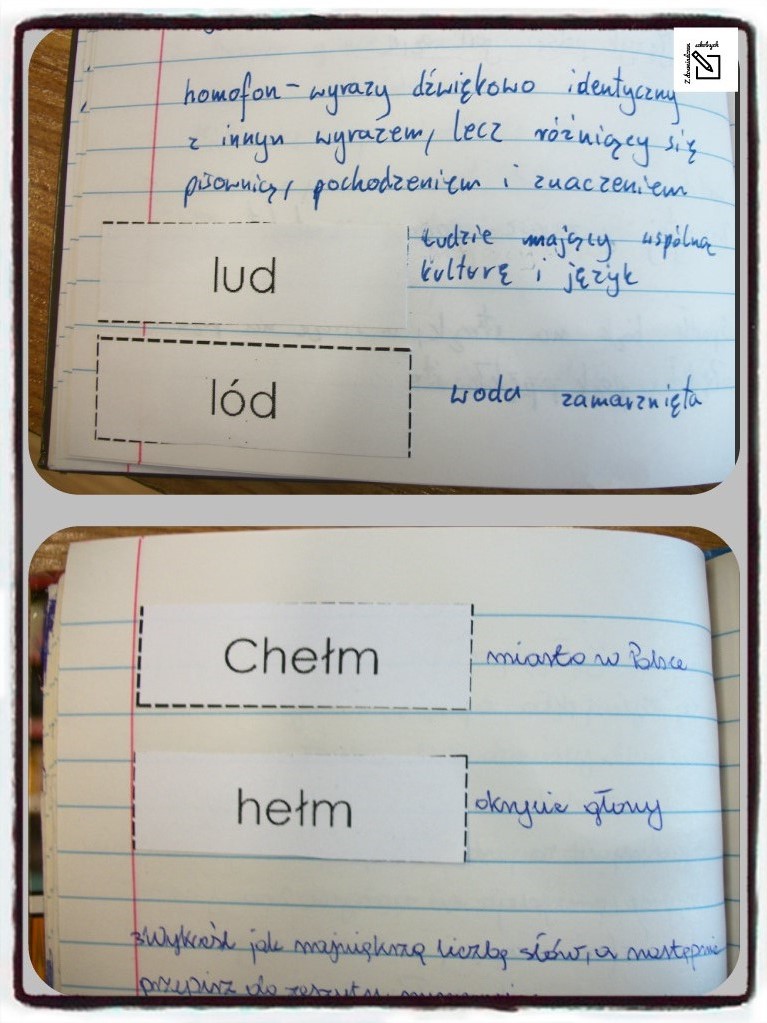 Z dziennika szkolnych
homofon - wyrazy dźwiękowo identyczny
z innyn wyrazem, lecz różniący się
pisownią, pochodzeniem i znaczeniem
lud
Ludzie mający wspólną
kulturę i język
lód
woda zamarznięta
Chełm
miasto w Polsce
hełm
okrycie głowy
Wykreśl jak największą liczbę słów, a następnie
przepisz do zeszytu